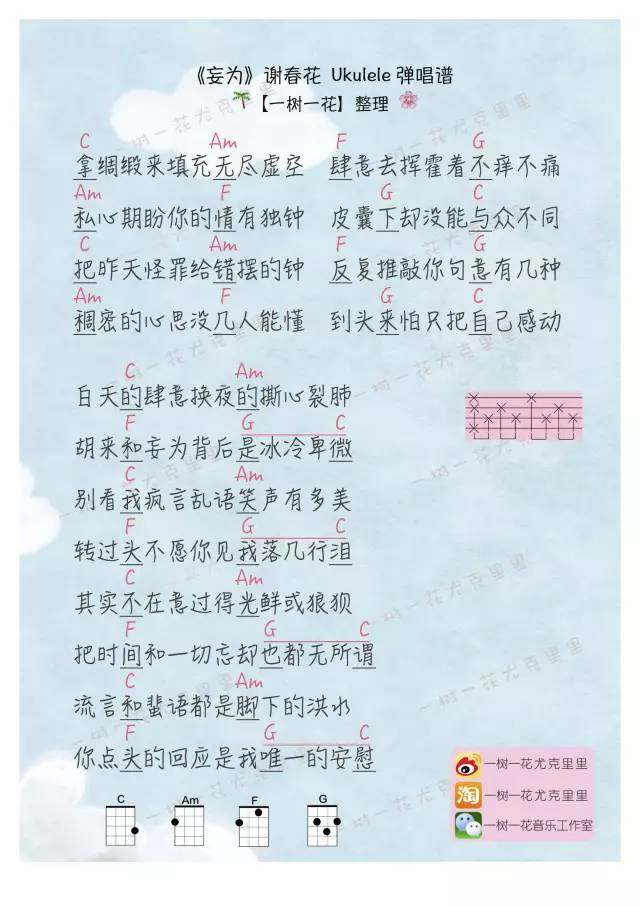 《妄为》谢春花 Ukulele 弹唱谱
【一树一花】整理
C Am F G
拿绸缎来填充无尽虚空 肆意去挥霍着不痒不痛
Am F G C
私心期盼你的情有独钟 皮囊下却没能与众不同
C Am F G
把昨天怪罪给错摆的钟 反复推敲你句意有几种
Am F G C
稠密的心思没几人能懂 到头来怕只把自己感动
C Am
白天的肆意换夜的撕心裂肺
F G C
胡来和妄为背后是冰冷卑微
C Am
别看我疯言乱语笑声有多美
F G C
转过头不愿你见我落几行泪
C Am
其实不在意过得光鲜或狼狈
F G C
把时间和一切忘却也都无所谓
C Am
流言和蜚语都是脚下的洪水
F G C
你点头的回应是我唯一的安慰
C Am F G
一树一花尤克里里
淘 一树一花尤克里里
一树一花音乐工作室